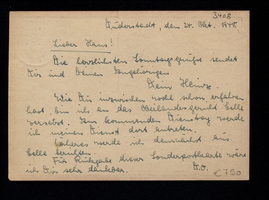 3408
Duderstadt, den 24. Okt. 1948
Lieber Hans!
Die herzlichsten Sonntagsgrüße sendet
Dir und Deinen Angehörigen
Dein Heinz.
Wie Du inzwischen wohl schon erfahren
hast bin ich an das Oberlandesgericht Celle
versetzt. Am kommenden Dienstag werde
ich meinen Dienst dort antreten.
Näheres werde ich demnächst aus
Celle berichten.
Für Rückgabe dieser Sonderpostkarte wäre
ich Dir sehr dankbar. D.O.
€ 7.50